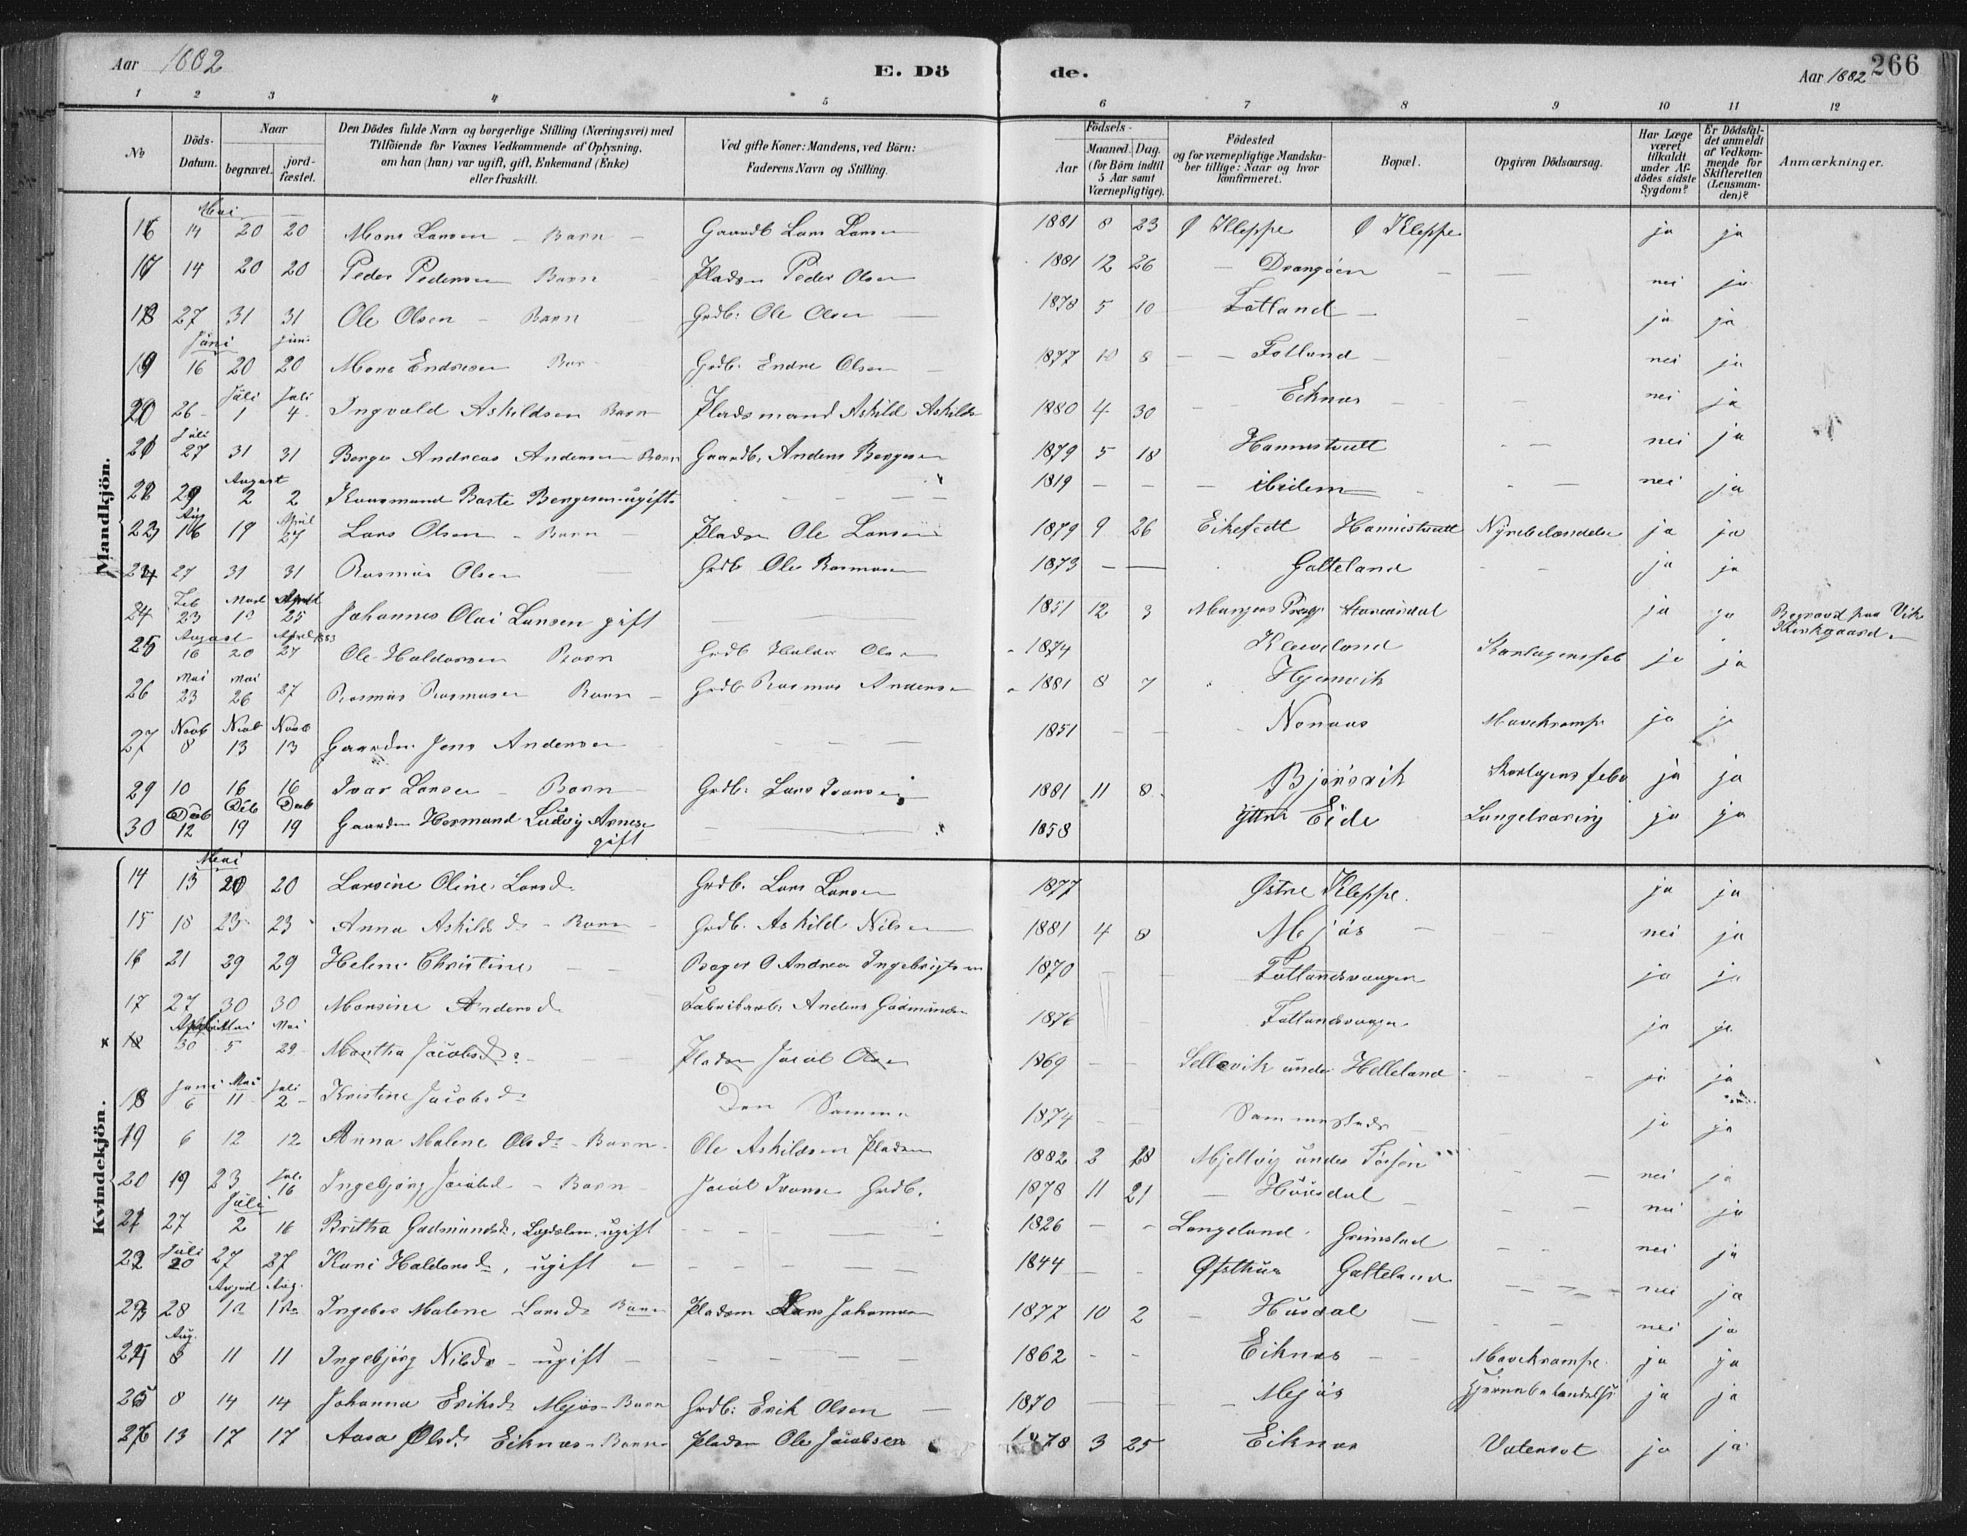 Aar 1882 E. Dö de. Aar 1882 266
1 2 3 4 5 6 7 8 9 10 11 12
No Döds-Datum. Naar begravet. jordfæstet. Den Dödes fulde Navn og borgerlige Stilling (Næringsvei) med Tilföiende for Voxnes Vedkommende af Oplysning, om han (hun) var ugift, gift, Enkemand (Enke) eller fraskilt. Ved gifte Koner: Mandens, ved Börn: Faderens Navn og Stilling. Födsels- Aar Maaned. Dag. (for Börn indtil 5 Aar samt Værnepligtige). Födested og for værnepligtige Mandskaber tillige: Naar og hvor konfirmeret. Bopæl. Opgiven Dödsaarsag. Har Læge været tilkaldt under Afdödes sidste Sygdom? Er Dödsfaldet anmeldt af Vedkommende for Skifteretten (Lensmanden)? Anmærkninger.
Mandkjön.
Mai
16 14 20 20 Mons Larsen - Barn - Gaardb Lars Larsen 1881 8 23 Ø Kleppe Ø Kleppe ja ja
17 14 20 20 Peder Pedersen Barn Pladsm Peder Olsen 1881 12 26 - Drangöen - nei ja
18 27 31 31 Ole Olsen - Barn Grdb: Ole Olsen 1878 5 10 Fotland - ja ja
Juni juni
19 16 20 20 Mons Endresen Bar Grdb. Endre Olsen 1877 10 8 - - Fotland - nei ja
Juli Juli
20 26 1 4 Ingvald Askildsen Barn Pladsmand Askild Askilds 1880 4 30 - Eknes - nei ja
Juli
21 27 31 31 Berge Andreas Andersen Barn Gaardb. Anders Bergesen 1879 5 18 Hannestvedt - nei ja
August
22 29 2 2 Baste Bergesen ugift - 1819 - - - ibidem - nei ja
Aug April
23 16 19 27 Lars Olsen - Barn - Pladsm Ole Larsen 1879 9 26 Eikefedt Hannestvedt Nyrebetændelse ja ja
24 27 31 31 Rasmus Olsen Grdb Ole Rasmusen 1873 - - Galteland - - ja ja
Feb April
24 23 18 25 Johannes Olai Larsen gift 1851 12 3 Mangers Præg ja ja Begravd paa Vik Kirkegaard.
August April 1883
25 16 20 27 Ole Haldorsen Barn Grdb Haldor Olsen 1874 Skarlagensfeb ja ja
Mai Mai
26 23 26 27 Rasmus Rasmusen Barn - Grdb Rasmus Andersen 1881 8 7 Hjelmvik
Novb Novb Novb
27 8 13 13 Gaardm. Jens Andersen - 1851 - - Nonaas Mavekrampe ja j
29 10 16 16 Ivar Larsen - Barn - Grdb: Lars Ivarsen 1881 11 8 Bjørsvik Skarlagens feber ja ja
Deb Deb Decb
30 12 19 19 Gaardm Hermand Ludvig Arnesen gift - 1858 Yttre Eide ja ja
Kvindekjön.
Mai
14 13 20 20 Larsine Oline Larsd. Grdb. Lars Larsen 1877 Østre Kleppe. ja ja
15 18 23 23 Anna Askilds d - Barn - Grdb. Askild Nilsen 1881 4 8 Mjøs - nei ja
16 21 29 29 Helene Christine - Bager O Andreas Ingebrigtsen 1870 Fotlandsvaagen ja ja
17 27 30 30 Marsine Andersd Fabrikarb. Anders Gudmundsen 1876 - Fotlandsvaagen ja ja
April Mai Mai
x 18 30 5 29 Martha Jacobsd. - Pladsm Jacob Olsen 1869 - - Sellevik under Helleland - ja ja
Juni Mai Juli
18 6 11 2 Kristine Jacobsd. Den Samme 1874 - - Sammestads - ja ja
19 6 12 12 Anna Malene Olsd. - Barn - Ole Askildsen Pladsm 1882 2 28 Mjeltvig under nei ja
Juli
20 19 23 16 Ingebjørg Jacobsd - Barn Jacob Ivarsen Grdb. 1878 11 21 - Huusdal - nei ja
Juli
21 27 2 16 Brittha Gudmundsd. ugift - 1826 - - Langeland Grimstad nei ja
Juli
22 20 27 27 Kari Haldorsd., ugift - 1844 - - Øfsthus Galteland - nei ja
August Aug.
23 28 Ingebor Malene Larsd. Barn Pladsm Lars Johannesen 1877 10 2 - Husdal - nei ja
Aug.
24 8 11 11 Ingebjørg Nilsd. - ugift - 1862 - - Eiknes - - Mavekrampe ja ja
25 8 14 14 Johanna Eriksd. Mjøs - Barn Grdb: Erik Olsen - 1870 - Mjøs Hjernebetændelse ja ja
26 13 17 17 Aasa Olsd. Eiknes - Barn - Pladsm Ole Jacobsen 1878 3 25 Eiknes Vatersot ja ja